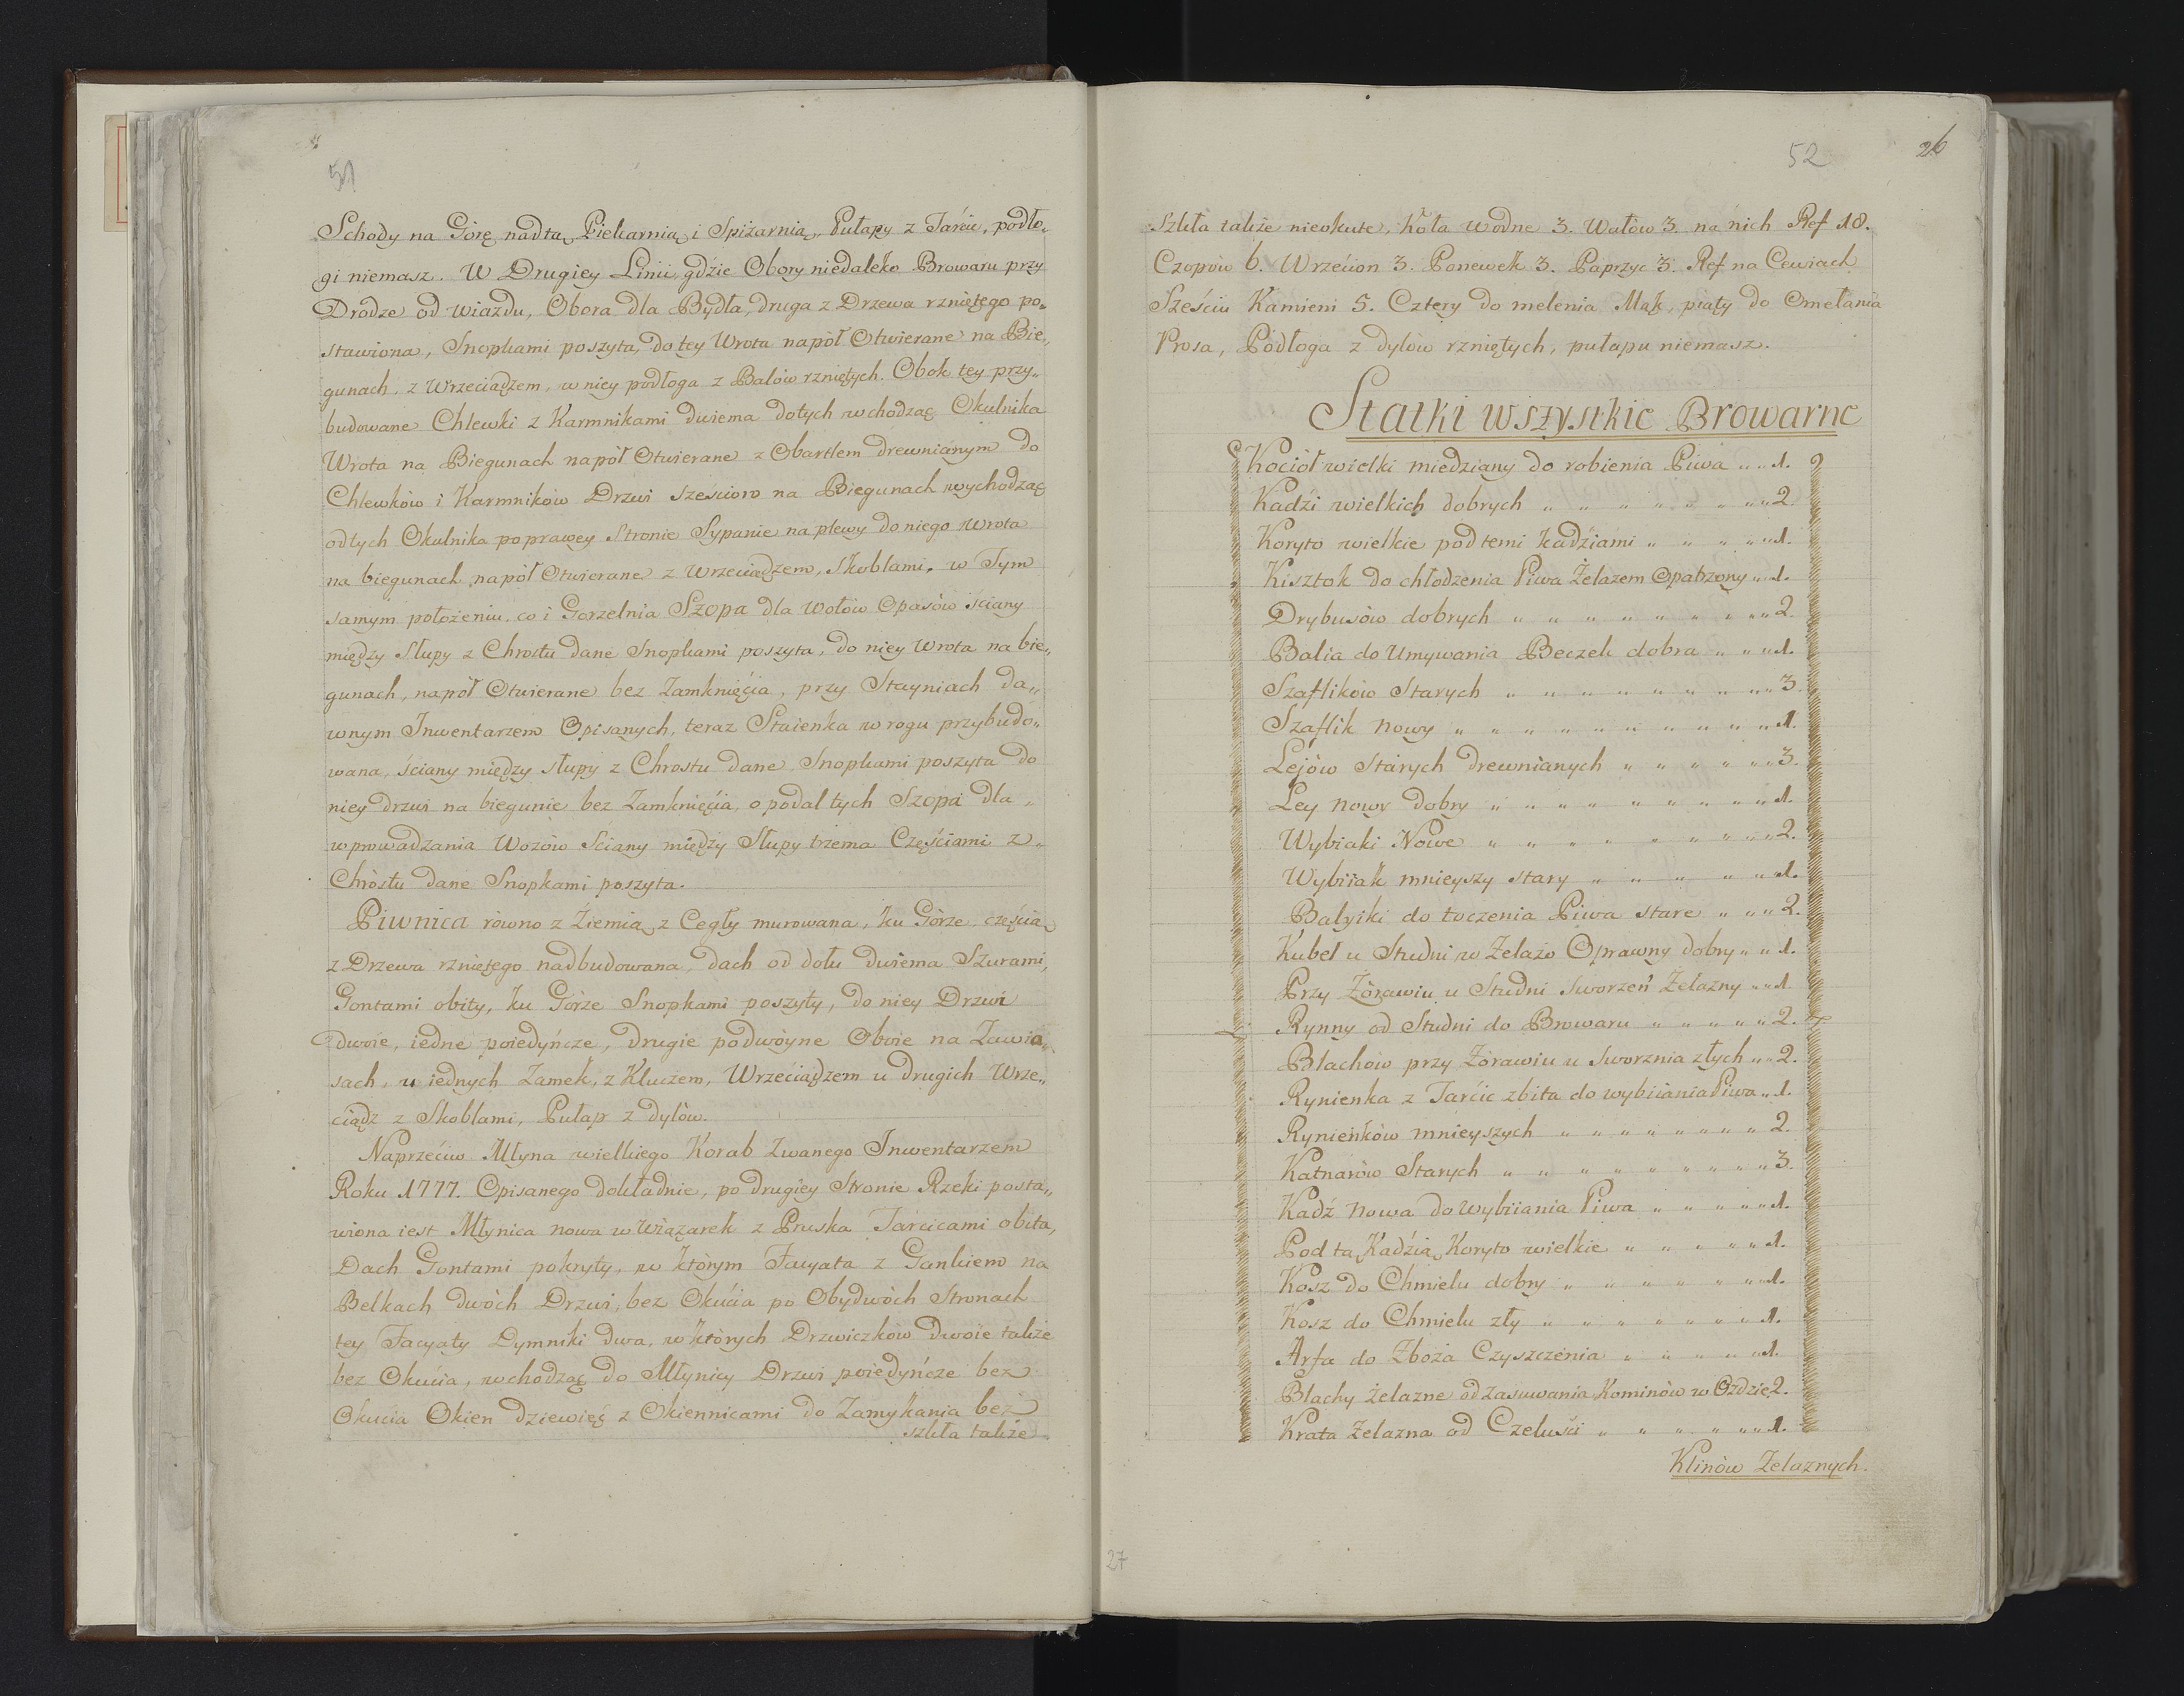 51
Schody na Górę nad tą Piekarnią i Spiżarnią, Pułapy z Tarcic, podło„
gi niemasz. W Drugiey Linii, gdzie Obory niedaleko Browaru przy
Drodze od wiazdu, Obora dla Bydła, druga z Drzewa rzniętego po„
stawiona, Snopkami poszyta, do tey Wrota napół Otwierane na Bie„
gunach, z Wrzeciądzem, w niey podłoga z Balów rzniętych. Obok tey przy„
budowane Chlewki z Karmnikami dwiema do tych wchodząc Okulnika
Wrota na Biegunach napół Otwierane z Obartlem drewnianym do
Chlewków i Karmników Drzwi sześcioro na Biegunach wychodząc
od tych Okulnika po prawey Stronie Sypanie na plewy do niego Wrota
na biegunach napół Otwierane z Wrzeciądzem, Skoblami. w Tym
samym położeniu, co i Gorzelnia Szopa dla Wołów Opasów ściany
między Słupy z Chrostu dane Snopkami poszyta, do niey Wrota na bie„
gunach, napół Otwierane bez Zamknięćia, przy Stayniach da„
wnym Inwentarzem Opisanych, teraz Staienka w rogu przybudo„
wana, ściany między słupy z Chrostu dane, Snopkami poszyta do
niey drzwi na biegunie bez Zamknięćia, opodal tych Szopa dla „
wprowadzania Wozów Sciany między Słupy trzema Częściami z „
Chróstu dane Snopkami poszyta.
Piwnica równo z Ziemią, z Cegły murowana, ku Górze częścią
z Drzewa rzniętego nadbudowana, dach od dołu dwiema Szurami,
Gontami obity, ku Górze Snopkami poszyty, do niey Drzwi
dwoie, iedne poiedyńcze, drugie podwóyne Oboie na Zawia„
sach, u iednych Zamek, z Kluczem, Wrzeciądzem u drugich Wrze„
ciądz z Skoblami, Pułap z dylów.
Naprzećiw Młyna wielkiego Korab Zwanego Inwentarzem
Roku 1777. Opisanego dokładnie, po drugiey Stronie Rzeki posta„
wiona iest Młynica nowa w Wiązarek z Pruska Tarcicami obita,
Dach Gontami pokryty, w którym Facyata z Gankiem na
Belkach dwóch Drzwi, bez Okućia po Obydwóch Stronach
tey Facyaty Dymniki dwa, w których Drzwiczków dwoie także
bez Okućia, wchodząc do Młynicy Drzwi poiedyńcze bez
Okucia Okien dziewięć z Okiennicami do Zamykania bez
szkła także
52
26
Szkła także nieokute, Koła Wodne 3. Wałów 3 na nich Ref 18.
Czopów 6. Wrzećion 3. Panewek 3. Paprzyc 3. Ref na Cewiach
Sześciu Kamieni 5. Cztery do melenia Mąk, piąty do Omełania
Prosa, Podłoga z dylów rzniętych, pułapu niemasz.
Statki wszystkie Browarne
Kocioł wielki miedziany do robienia Piwa „ „ 1.
Kadźi wielkich dobrych „ „ „ „ „ „ „ „ 2.
Koryto wielkie pod temi kadźiami „ „ „ „ „ 1.
Kisztok do chłodzenia Piwa Żelazem Opatrzony „ 1.
Drybusów dobrych „ „ „ „ „ „ „ „ „ 2.
Balia do Umywania Beczek dobra „ „ „ 1.
Szaflików Starych „ „ „ „ „ „ „ „ „ 3.
Szaflik nowy „ „ „ „ „ „ „ „ „ „ 1.
Lejów Starych drewnianych „ „ „ „ „ „ 3.
Ley nowy dobry „ „ „ „ „ „ „ „ „ „ 1.
Wybiaki Nowe „ „ „ „ „ „ „ „ „ 2.
Wybiiak mnieyszy stary „ „ „ „ „ „ 1.
Balyiki do toczenia Piwa stare „ „ „ 2.
Kubeł u Studni w Żelazo Oprawny dobry „ „ 1.
Przy Żórawiu u Studni Sworzeń Żelazny „ „ 1
Rynny od Studni do Browaru „ „ „ „ „ 2.
Blachów przy Żórawiu u Sworznia złych „ „ 2.
Rynienka z Tarćic zbita do wybiiania Piwa „ 1.
Rynieńków mnieyszych „ „ „ „ „ „ „ „ 2.
Katnarów Starych „ „ „ „ „ „ „ „ „ 3.
Kadź nowa do Wybiiania Piwa „ „ „ „ „ 1.
Pod tą Kadźią Koryto wielkie „ „ „ „ „ 1.
Kosz do Chmielu dobry „ „ „ „ „ „ „ 1.
Kosz do Chmielu zły „ „ „ „ „ „ „ 1.
Arfa do Zboża Czyszczenia „ „ „ „ „ 1.
Blachy żelazne od zasuwania Kominów w Ozdzie 2.
Krata Żelazna od Czeluści „ „ „ „ „ „ 1.
Klinów Żelaznych.
27